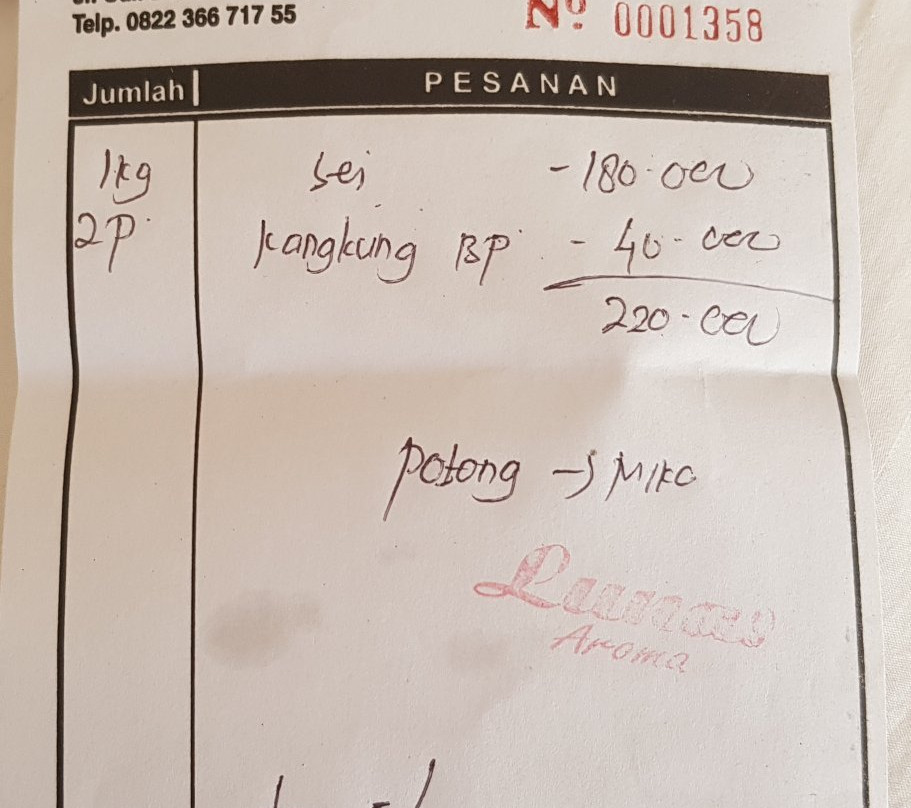 Telp. 0822 366 717 55
Nº 0001358
Jumlah PESANAN
1kg sei - 180.000
2P. kangkung BP. - 40.000
220.000
potong → MIKO
Lunas
Aroma